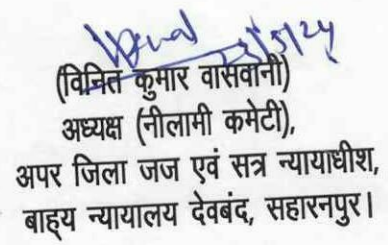 23/5/24
(विनित कुमार वासवानी)
अध्यक्ष (नीलामी कमेटी),
अपर जिला जज एवं सत्र न्यायाधीश,
बाह्य न्यायालय देवबंद, सहारनपुर।